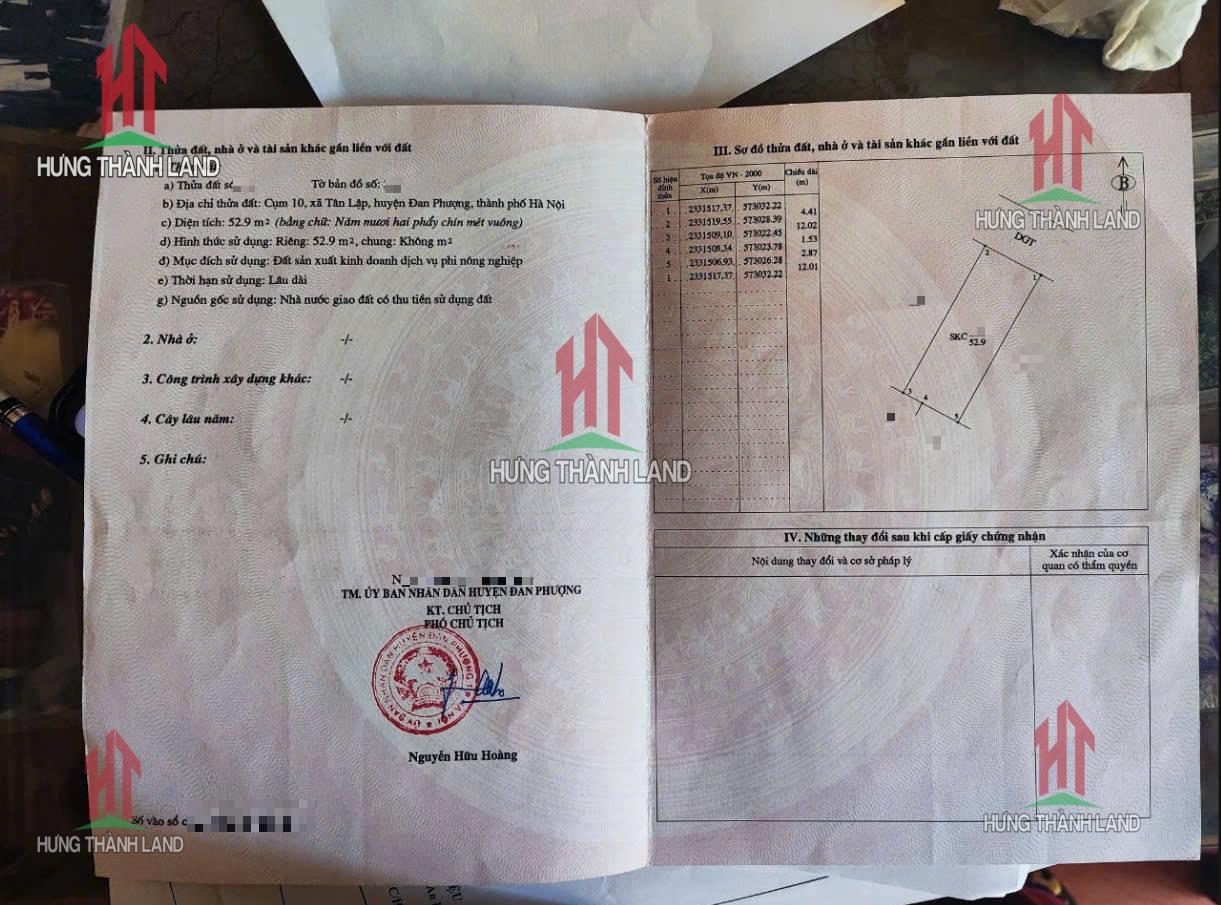 HƯNG THÀNH LAND
II. Thửa đất, nhà ở và tài sản khác gắn liền với đất
a) Thửa đất số: Tờ bản đồ số:
b) Địa chỉ thửa đất: Cụm 10, xã Tân Lập, huyện Đan Phượng, thành phố Hà Nội
c) Diện tích: 52.9 m² (bằng chữ: Năm mươi hai phẩy chín mét vuông)
d) Hình thức sử dụng: Riêng: 52.9 m², chung: Không m²
đ) Mục đích sử dụng: Đất sản xuất kinh doanh dịch vụ phi nông nghiệp
e) Thời hạn sử dụng: Lâu dài
g) Nguồn gốc sử dụng: Nhà nước giao đất có thu tiền sử dụng đất
2. Nhà ở: -/-
3. Công trình xây dựng khác: -/-
4. Cây lâu năm: -/-
5. Ghi chú:
HƯNG THÀNH LAND
N
TM. ỦY BAN NHÂN DÂN HUYỆN ĐAN PHƯỢNG
KT. CHỦ TỊCH
PHÓ CHỦ TỊCH
ỦY BAN NHÂN DÂN HUYỆN ĐAN PHƯỢNG T.P HÀ NỘI
Nguyễn Hữu Hoàng
Số vào sổ c
HƯNG THÀNH LAND
III. Sơ đồ thửa đất, nhà ở và tài sản khác gắn liền với đất
Số hiệu đỉnh thửa Tọa độ VN - 2000 Chiều dài (m)
X(m) Y(m)
1 2331517.37 573032.22
4.41
2 2331519.55 573028.39
12.02
3 2331509.10 573022.45
1.53
4 2331508.34 573023.78
2.87
5 2331506.93 573026.28
12.01
1 2331517.37 573032.22
B
HƯNG THÀNH LAND
DGT
2
1
SKC 52.9
3
4
5
IV. Những thay đổi sau khi cấp giấy chứng nhận
Nội dung thay đổi và cơ sở pháp lý
Xác nhận của cơ
quan có thẩm quyền
HƯNG THÀNH LAND